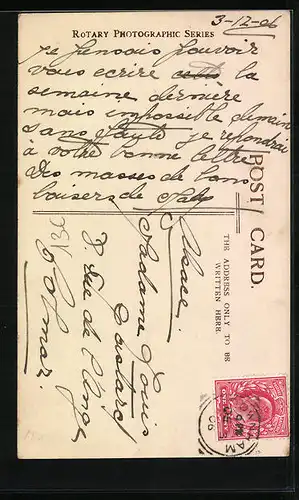 3-12-06
ROTARY PHOTOGRAPHIC SERIES
je pensais pouvoir
vous ecrire la
semaine dernière
mais impossible demain
sans faute je repondrai
à votre bonne lettre
Des masses de bons
baisers de
POST CARD.
THE ADDRESS ONLY TO BE
WRITTEN HERE.
Madame Louis
8 Rue de l'Ange
Colmar.
Alsace.
AM
06